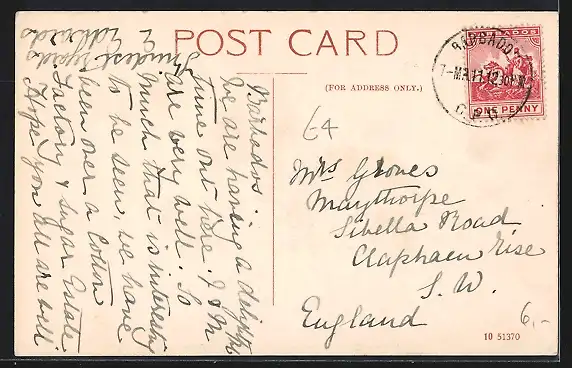 POST CARD
(FOR ADDRESS ONLY.)
BARBADOS
ONE PENNY
BARBADOS
7-MR 11 12 30 PM
G.P.O.
64
Mrs Groves
Maythorpe
Sibella Road
Clapham Rise
S.W.
England
6,-
10 51370
Barbados.
We are having a delightful
time out here. I & M
are very well. So
much that is interesting
to be seen, we have
been over a Cotton
Factory & Sugar Estate
Hope you all are well
Kindest regards